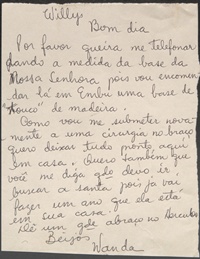 Willy
Bom dia
Por favor queira me telefonar
dando a medida da base da
Nossa Senhora pois vou encomen
dar lá em Embú uma base de
"touco" de madeira.
Como vou me submeter nova-
mente a uma cirurgia no braço
quero deixar tudo pronto aqui
em casa. Quero também que
você me diga qdo devo ir,
buscar a santa pois já vai
fazer um ano que ela está
em sua casa.
Dê um gde abraço no
Beijos,
Wanda